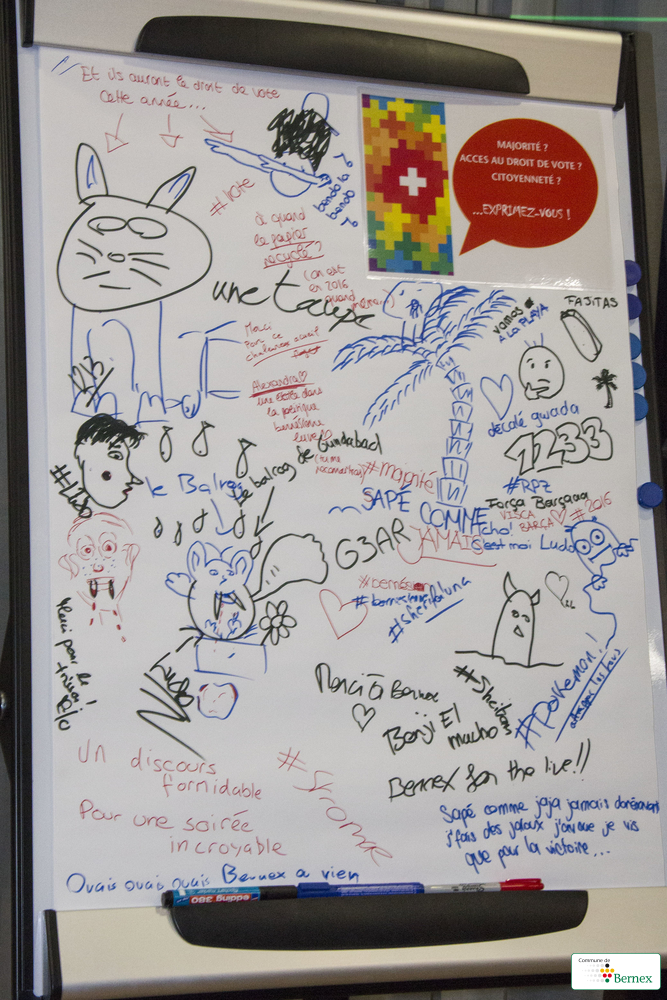 Et ils auront le droit de vote
Cette année...
MAJORITÉ ?
ACCES AU DROIT DE VOTE ?
CITOYENNETÉ ?
...EXPRIMEZ-VOUS !
#VOTE
bande la
bande
à quand
le papier
recyclé ?
(on est
en 2016
quand
même...
une taupe
Merci
Alexandra
une étoile dans
la politique
vamos
A LA PLAYA
FAJITAS
décalé gwada
1233
#RPZ
Força Barçaaa
VISCA
BARÇA
#2016
le Balrog
le balrog de Gundabad
#majorité
SAPÉ COMME
JAMAIS
G3AR
c'est moi Ludo
#sherifaluna
Merci pour le
Merci à Bernex
#Sheitans
Benji El
macho
#pokemon!
attrapez les tous
Bernex for the live!!
Un discours
formidable
Pour une soirée
incroyable
#Stromae
Sapé comme jaja jamais dorénavant
j'fais des jaloux j'avoue je vis
que pour la victoire...
Ouais ouais ouais Bernex a vien
edding 380
Commune de
Bernex